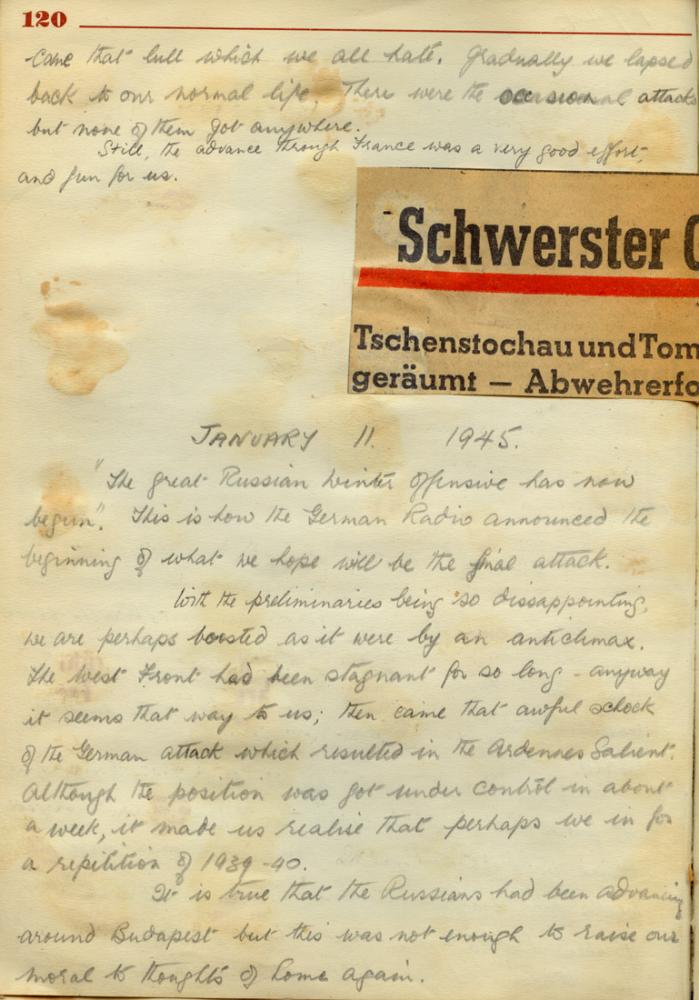 120
came that lull which we all hate. Gradually we lapsed
back to our normal life. There were the occasional attacks
but none of them got anywhere.
Still, the advance through France was a very good effort,
and fun for us.
Schwerster
Tschenstochau und Tom
geräumt — Abwehrerfo
JANUARY 11. 1945.
"The great Russian Winter Offensive has now
begun". This is how the German Radio announced the
beginning of what we hope will be the final attack.
With the preliminaries being so dissappointing,
we are perhaps boosted as it were by an anticlimax.
The West Front had been stagnant for so long - anyway
it seems that way to us; then came that awful schock
of the German attack which resulted in the Ardennes Salient.
Although the position was got under control in about
a week, it made us realise that perhaps we in for
a repitition of 1939-40.
It is true that the Russians had been advancing
around Budapest but this was not enough to raise our
moral to thoughts of home again.